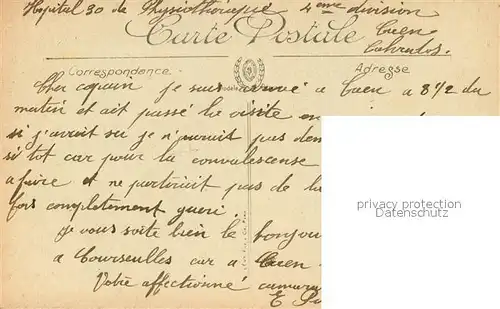 Hôpital 30 de Physiothérapie 4eme division
Caen
Carte Postale
Calvados.
Correspondance
Adresse
Cher copain je suis arrivé a Caen a 8 1/2 du
matin et ait passé la visite en
si j'avait su je n'aurait pas dem
si tot car pour la convalescense
a faire et ne partirait pas de la
fois completement gueri.
je vous soite bien le bonjou
a Courseulles car a Caen
Votre affectionné camara
E
privacy protection
Datenschutz